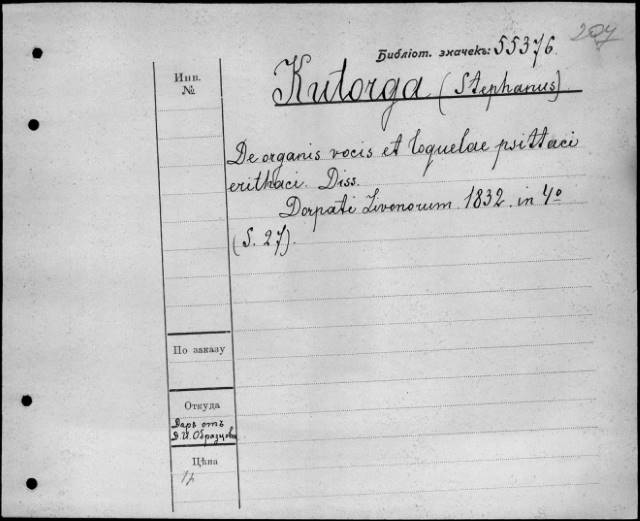 207
Библіот. значекъ: 55376.
Инв. №
Kutorga (Stephanus).
De organis vocis et loquelae psittaci
erithaci. Diss.
Dorpati Livonorum 1832. in 4o
(S. 27).
По заказу
Откуда
Даръ отъ
Д.И. Образцова
Цѣна